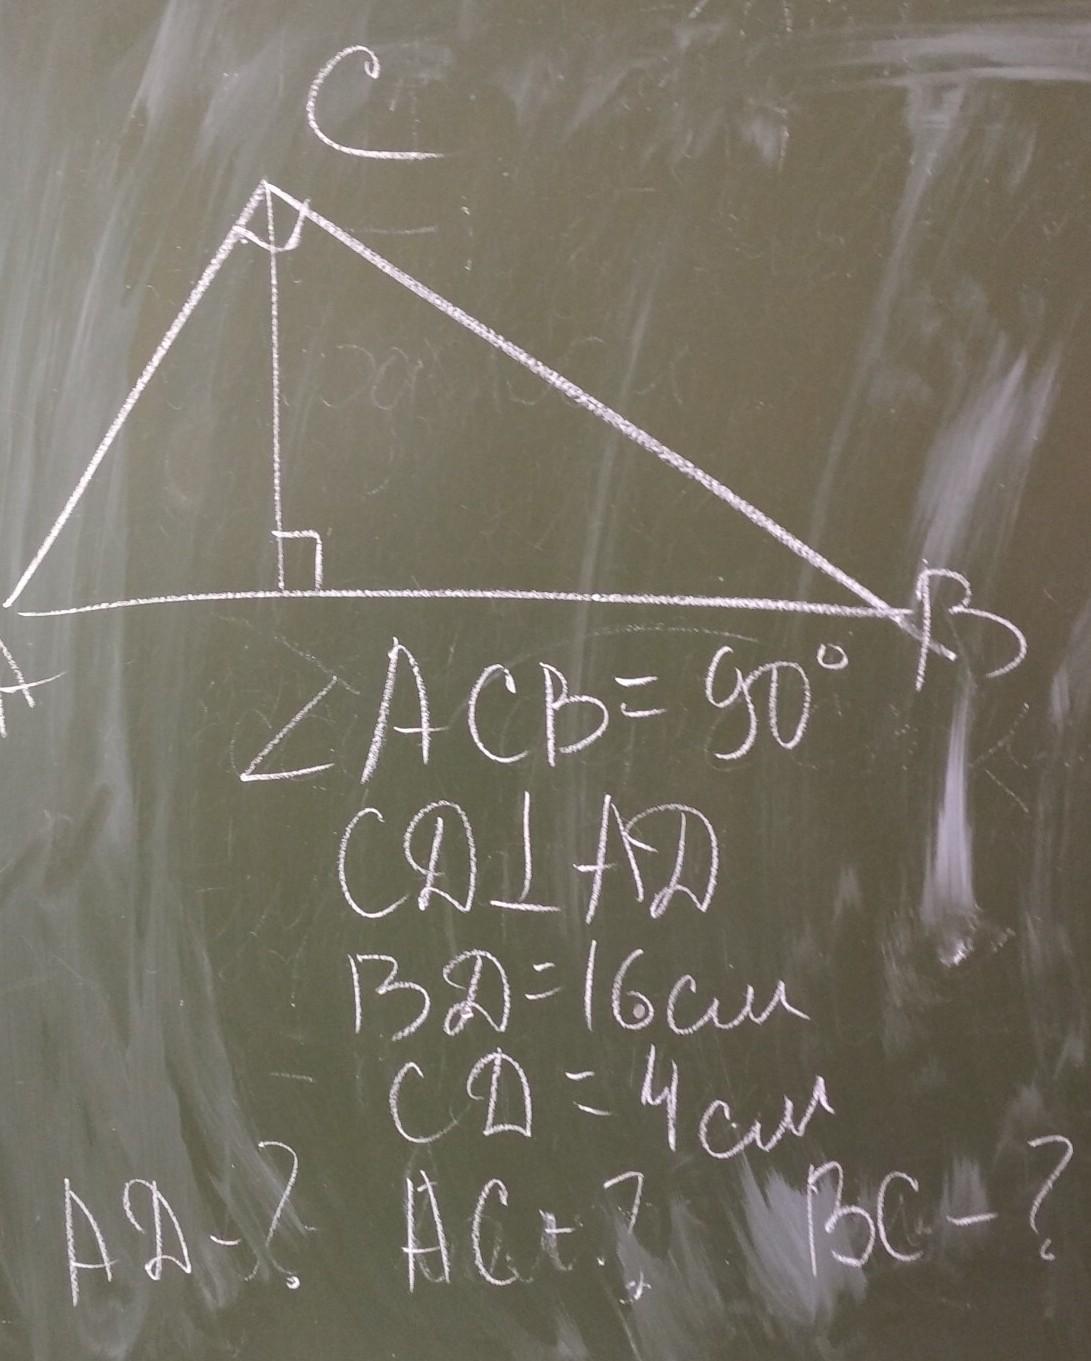 C
A
B
∠ACB=90°
CD⊥AD
BD=16см
CD=4см
AD-? AC-? BC-?